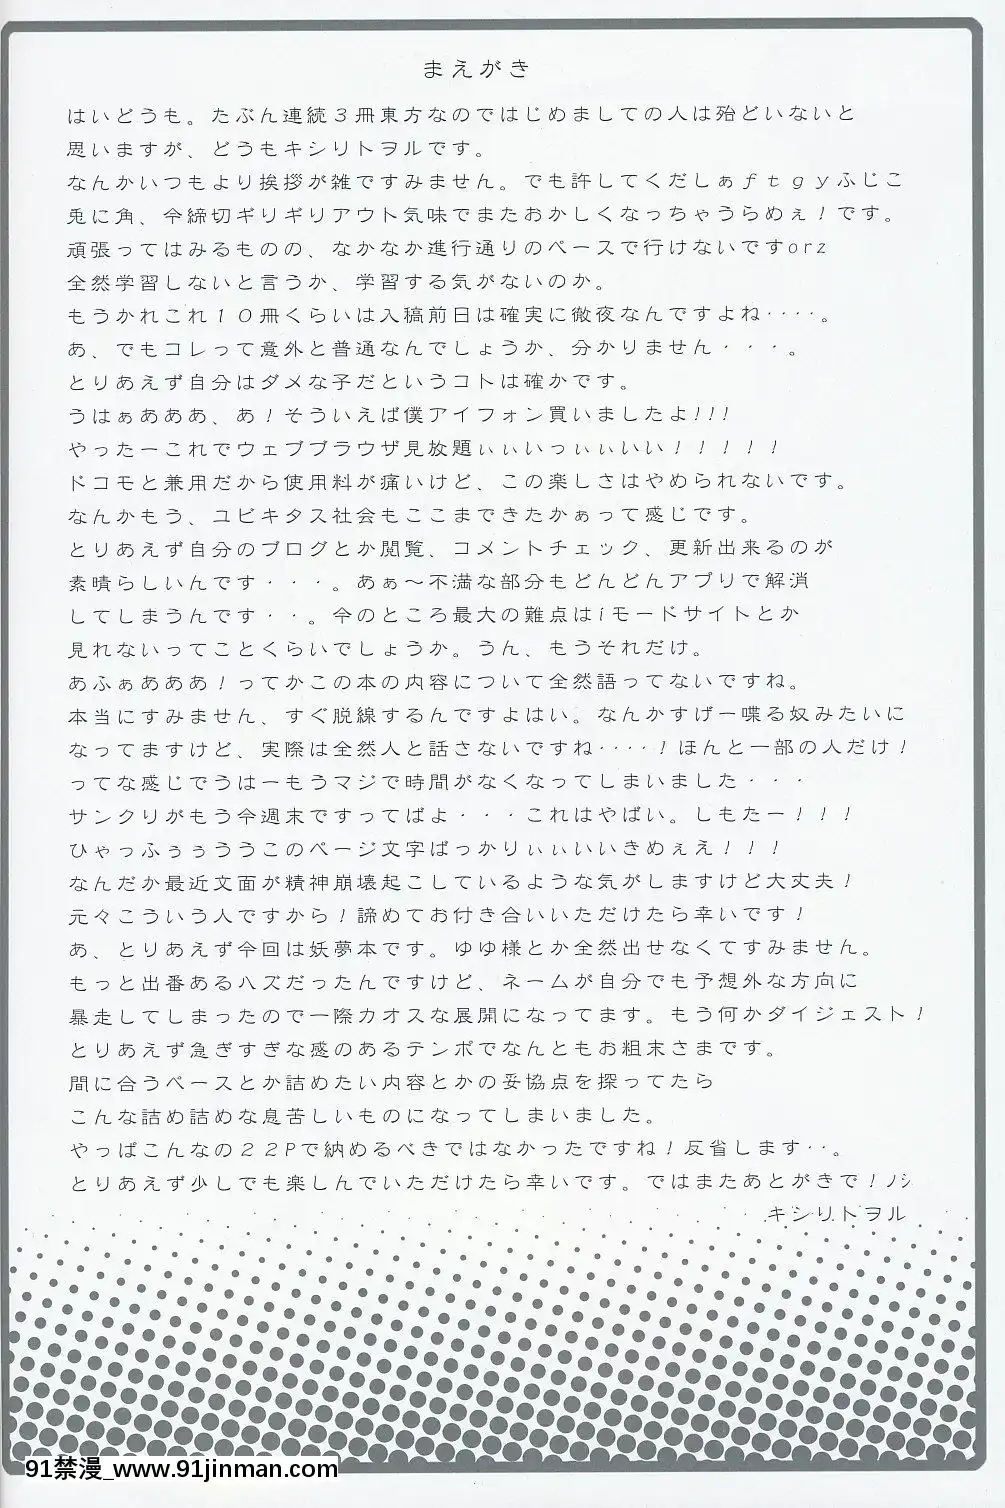 まえがき
はいどうも。たぶん連続３冊東方なのではじめましての人は殆どいないと
思いますが、どうもキシリトヲルです。
なんかいつもより挨拶が雑ですみません。でも許してくだしぁｆｔｇｙふじこ
兎に角、今締切ギリギリアウト気味でまたおかしくなっちゃうらめぇ！です。
頑張ってはみるものの、なかなか進行通りのペースで行けないですorz
全然学習しないと言うか、学習する気がないのか。
もうかれこれ１０冊くらいは入稿前日は確実に徹夜なんですよね・・・・。
あ、でもコレって意外と普通なんでしょうか、分かりません・・・。
とりあえず自分はダメな子だというコトは確かです。
うはぁあああ、あ！そういえば僕アイフォン買いましたよ!!!
やったーこれでウェブブラウザ見放題ぃぃいっぃぃいい！！！！！
ドコモと兼用だから使用料が痛いけど、この楽しさはやめられないです。
なんかもう、ユビキタス社会もここまできたかぁって感じです。
とりあえず自分のブログとか閲覧、コメントチェック、更新出来るのが
素晴らしいんです・・・。あぁ～不満な部分もどんどんアプリで解消
してしまうんです・・。今のところ最大の難点はiモードサイトとか
見れないってことくらいでしょうか。うん、もうそれだけ。
あふぁあああ！ってかこの本の内容について全然語ってないですね。
本当にすみません、すぐ脱線するんですよはい。なんかすげー喋る奴みたいに
なってますけど、実際は全然人と話さないですね・・・・！ほんと一部の人だけ！
ってな感じでうはーもうマジで時間がなくなってしまいました・・・
サンクリがもう今週末ですってばよ・・・これはやばい。しもたー！！！
ひゃっふぅぅううこのページ文字ばっかりぃぃいいきめぇえ！！！
なんだか最近文面が精神崩壊起こしているような気がしますけど大丈夫！
元々こういう人ですから！諦めてお付き合いいただけたら幸いです！
あ、とりあえず今回は妖夢本です。ゆゆ様とか全然出せなくてすみません。
もっと出番あるハズだったんですけど、ネームが自分でも予想外な方向に
暴走してしまったので一際カオスな展開になってます。もう何かダイジェスト！
とりあえず急ぎすぎな感のあるテンポでなんともお粗末さまです。
間に合うペースとか詰めたい内容とかの妥協点を探ってたら
こんな詰め詰めな息苦しいものになってしまいました。
やっぱこんなの２２Pで納めるべきではなかったですね！反省します・・。
とりあえず少しでも楽しんでいただけたら幸いです。ではまたあとがきで！ノシ
キシリトヲル
91禁漫_www.91jinman.com